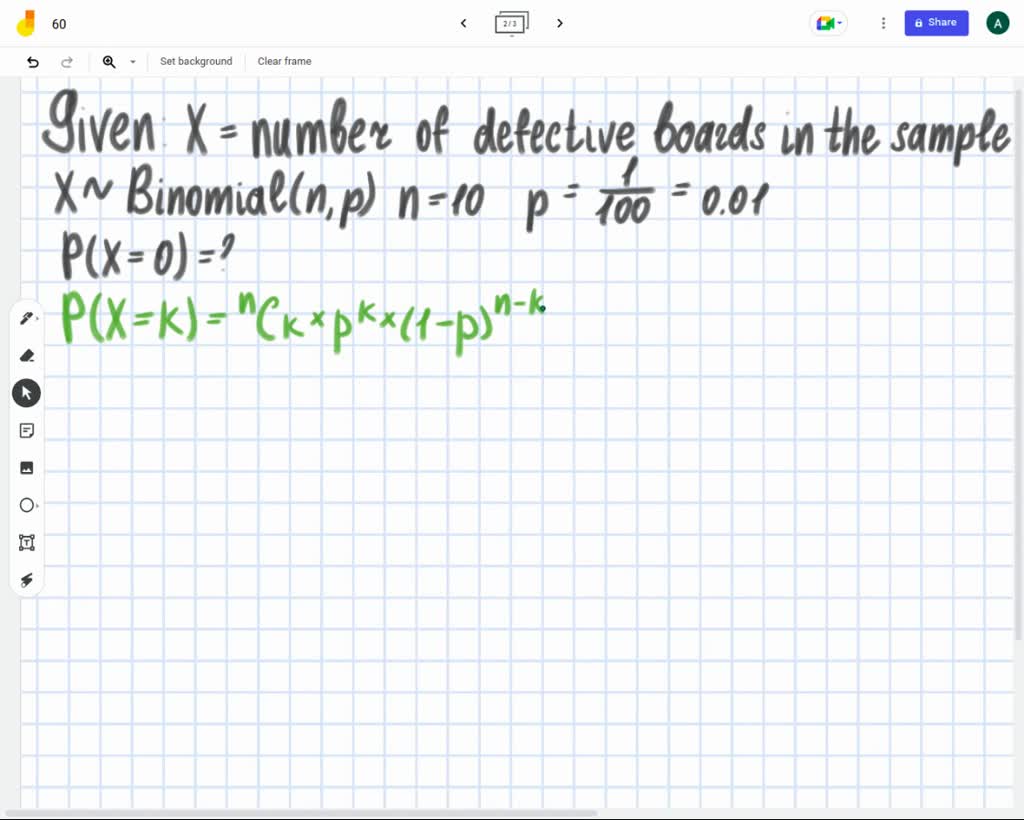 60
2/3
Share
A
Set background
Clear frame
Given: X = number of defective boards in the sample
X ~ Binomial(n,p) n=10 p = 1/100 = 0.01
P(X=0)=?
P(X=k) = ⁿCₖ × pᵏ × (1-p)ⁿ⁻ᵏ